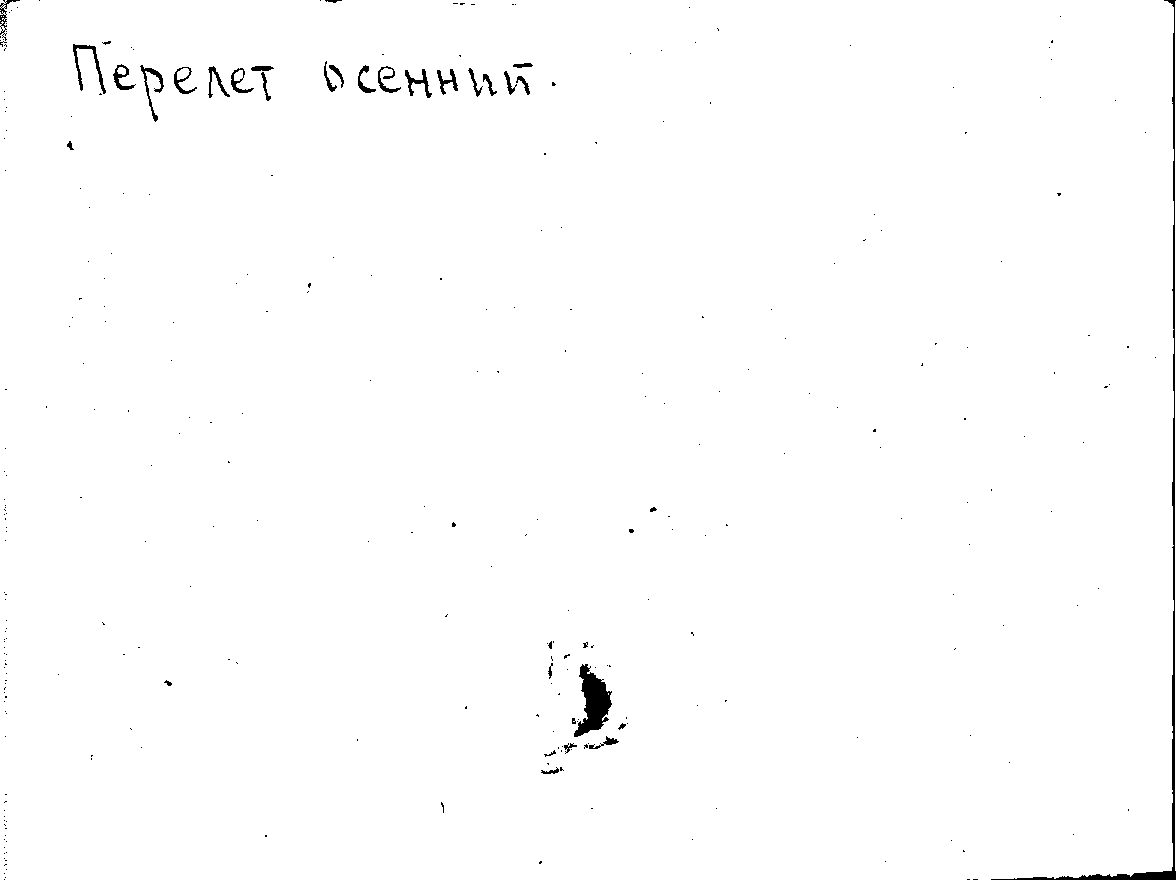 Перелет осенний.